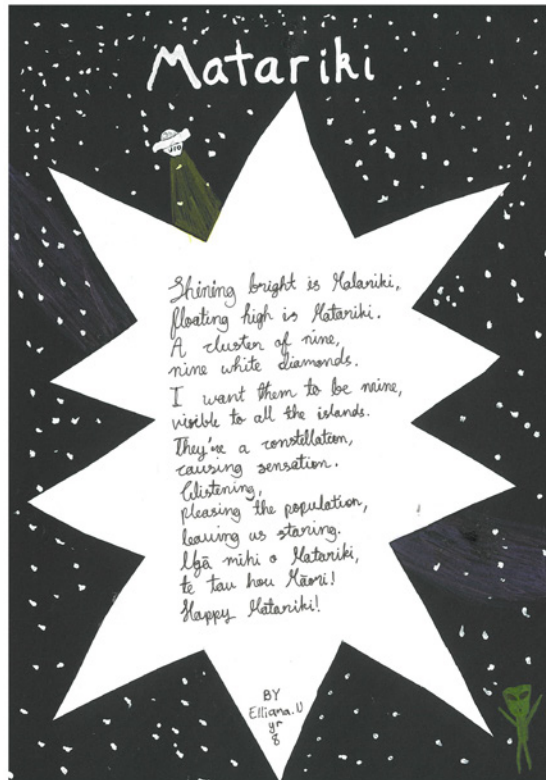 Matariki
Shining bright is Matariki,
floating high is Matariki.
A cluster of nine,
nine white diamonds.
I want them to be mine,
visible to all the islands.
They're a constellation,
causing sensation.
Glistening,
pleasing the population,
leaving us staring.
Ngā mihi o Matariki,
te tau hou Māori!
Happy Matariki!
BY
Elliana.U
yr
8